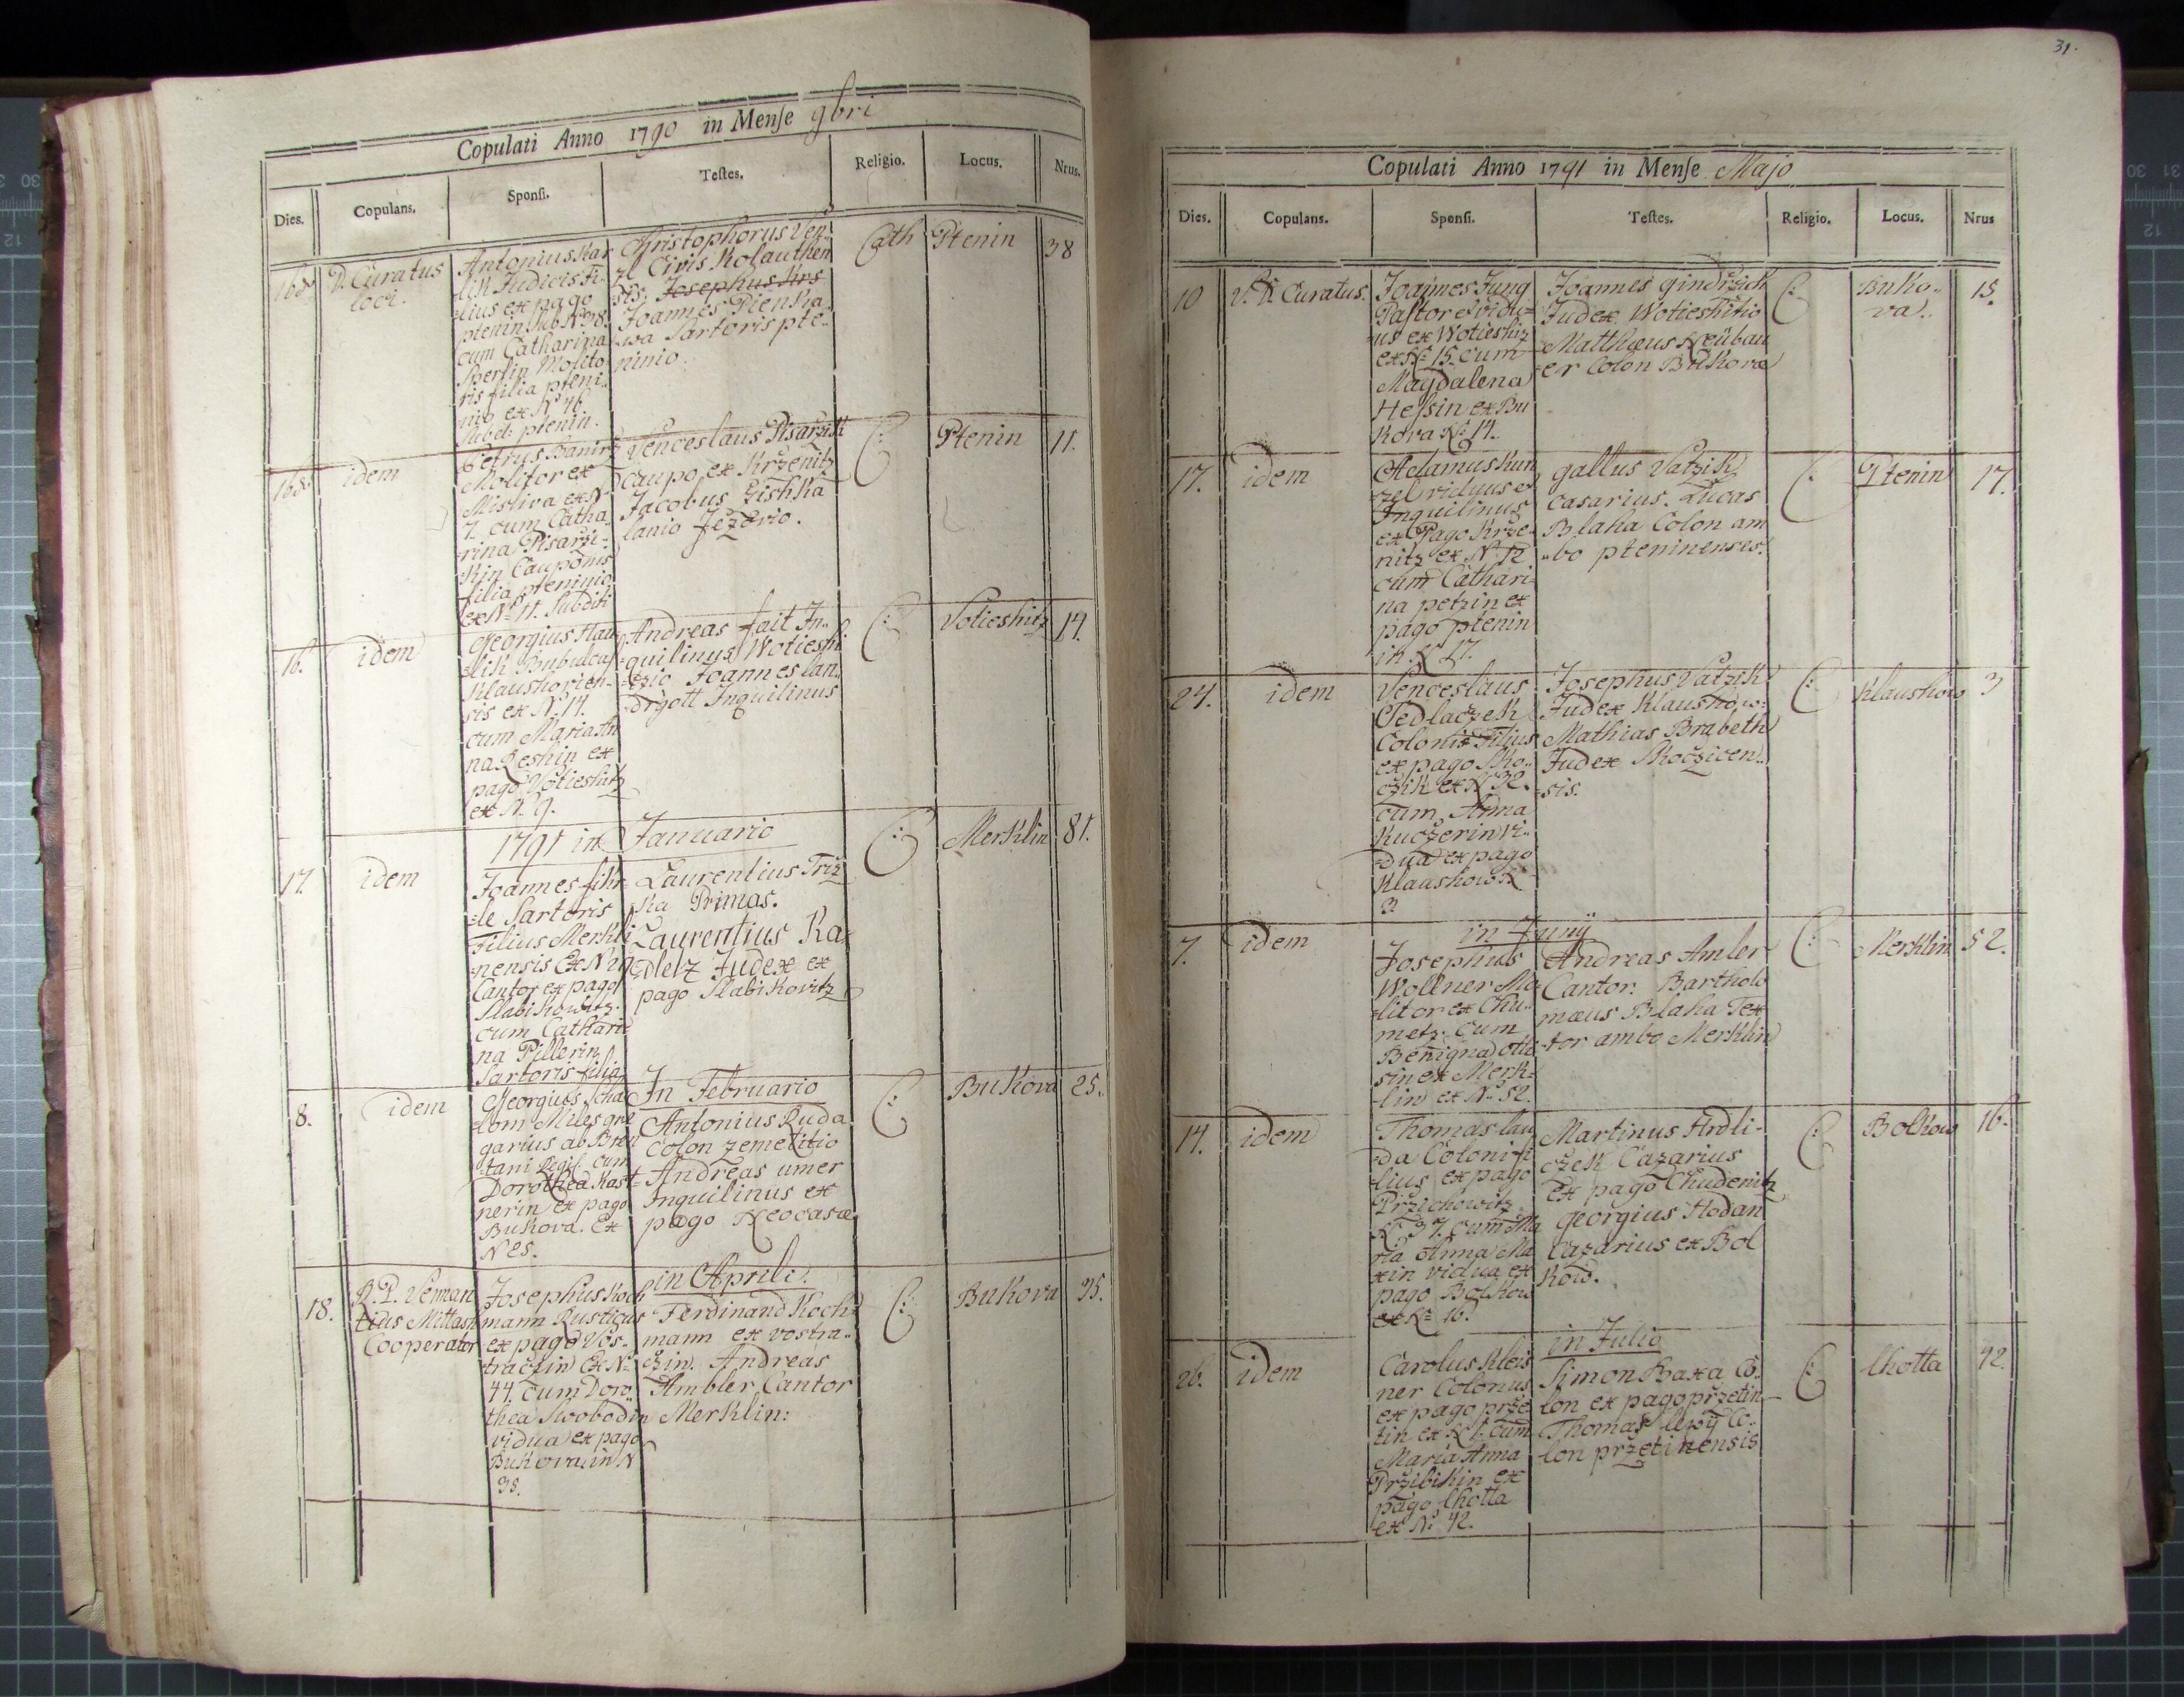 Copulati Anno 1790 in Menſe 9bri
Dies.
Copulans.
Sponſi.
Teſtes.
Religio.
Locus.
Nrus.
D. Curatus
loci.
Antonius Kar
lik Judicis fi-
lius ex pago
ptenin sub No 38.
cum Catharina
Molito
ris filia pteni..
nio ex No 46
Subd: ptenin.
Christophorus Ven..
zl Civis Kolauthen
sis. Josephus Krs
Joannes Pienka
wa Sartoris pte..
ninio.
Cath
Ptenin
38
idem
Petrus
Molitor ex
Misliva ex N
7. cum Catha
rina Pisarzi-
kin Cauponis
filia pteninio
ex No 11. Subditi
Venceslaus Pisarzik
Caupo ex Krženitz
Jacobus Zishka
lanio Jezario.
C:
Ptenin
11.
16.
idem
Georgius Hau
lik Bubulcus
Klaushovien-
sis ex N. 14.
cum Maria An
na Reshin ex
pago Votieshitz
ex N. 9.
Andreas fait In..
quilinus Wotieshi
tzio Joannes lan..
drgott Inquilinus
C:
Votieshitz
14.
1791 in Januario
17.
idem
Joannes fihr
le Sartoris
Filius Merkli
nensis Ex N 29
Cantor ex pago
Slabikowitz.
cum Cathari
na Pillerin
Sartoris filia
Laurentius Triz
ka Primas.
Laurentius Ka
dletz Judex ex
pago Slabikovitz
C:
Merklin
81.
In Februario
8.
idem
Georgius Scha
lom Miles gre
garius ab Bren
tani Regil. cum
Dorothea Kast-
nerin ex pago
Bukova. Ex
N 25.
Antonius Ruda
Colon zemetitio
Andreas umer
Inquilinus ex
pago Neocasæ
C:
Bukova
25.
in Aprili.
18.
R. P. Venan
tius Mittash
Cooperator
Josephus Koch
mann Rusticus
ex pago Vos-
traczin Ex No
44. cum Doro..
thea Swobodin
vidua ex pago
Bukova in N
38.
Ferdinand Koch
mann ex vostra..
czin. Andreas
Ambler Cantor
Merklin:
C:
Bukova
35.
31.
Copulati Anno 1791 in Menſe Majo
Dies.
Copulans.
Sponſi.
Teſtes.
Religio.
Locus.
Nrus
10
V. D. Curatus.
Joannes Jung
Pastor Vidu-
us ex Wotieshitz
ex No 15. cum
Magdalena
Hessin ex Bu
kova No 14.
Joannes gindrzich
Judex Wotieshitio
Matthæus Neübau
er Colon Bukova
C:
Buko..
va..
15.
17.
idem
Adamus Kun
zel viduus et
Inquilinus
ex Pago Krže-
nitz ex N 12
cum Cathari-
na petzin ex
pago ptenin
in N 17.
gallus Vatzik
casarius. Lucas
Blaha Colon am
bo pteninenses.
C:
Ptenin
17.
24.
idem
Venceslaus
Sedlaczek
Colonis Filius
ex pago Sko..
czik ex N 32.
cum Anna
Kuczerin vi..
dua ex pago
Klaushow N
3
Josephus Vatzik
Judex Klaushow:
Mathias Brabeth
Judex Skoczicen..
sis.
C:
Klaushow
3
in Junÿ
7.
idem
Josephus
Wollner Mo
litor ex Chu..
metz: cum
Benigna
sin ex Merk-
lin ex No 52.
Andreas Amler
Cantor. Bartholo
mæus Blaha Tex
tor ambo Merklin
C:
Merklin
52.
14.
idem
Thomas lau
da Coloni fi
lius ex pago
Przichowitz
No 37. cum Ma
ria Anna Ma
xin vidua ex
pago Bolkow
ex No 16.
Martinus Hrdli-
czek Cazarius
ex pago Chudenitz
Georgius Hodan
Cazarius ex Bol
kow.
C:
Bolkow
16.
in Julio
26.
idem
Carolus Kleis
ner Colonus
ex pago prže
tin ex N 1. cum
Maria Anna
Pržibikin ex
pago lhotta
ex No 42.
Simon Baxa Co..
lon ex pago pržetin
Thomas lewÿ Co..
lon pržetinensis
C:
lhotta
42.